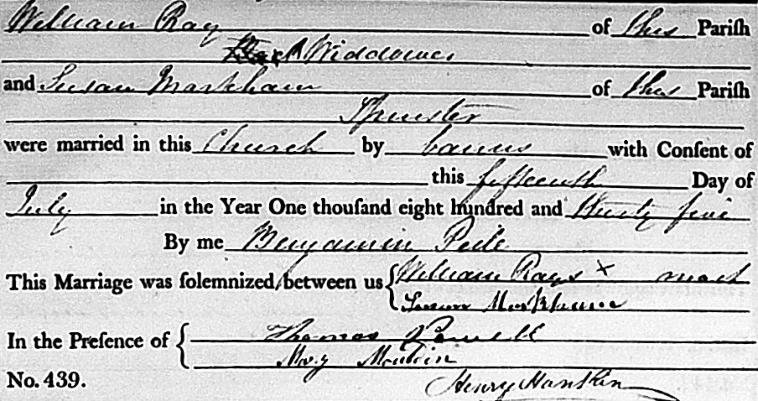 William Ray of this Parish
Widdower
and Susan Markham of this Parish
Spinster
were married in this Church by banns with Consent of
this fifteenth Day of
July in the Year One thousand eight hundred and thirty five
By me Benjamin Peile
This Marriage was solemnized between us William Rays x mark
Susan Markham
In the Presence of Thomas Powell
Mary
No. 439. Henry Hankin